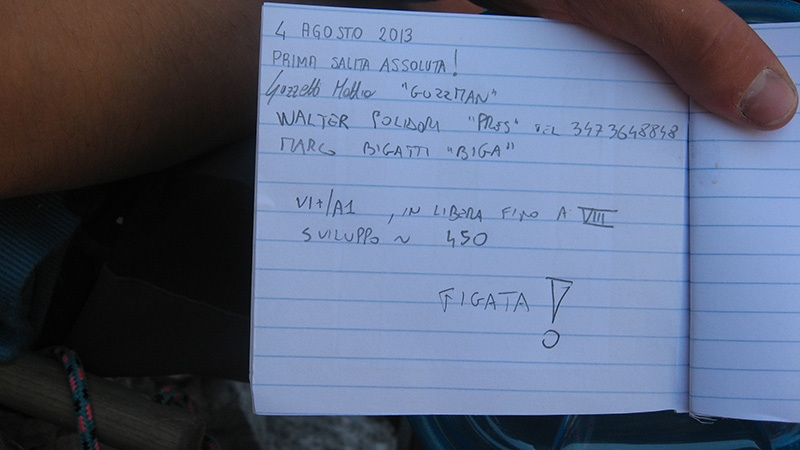 4 AGOSTO 2013
PRIMA SALITA ASSOLUTA!
Guzzetti Mattia "GUZZMAN"
WALTER POLIDORI "PRES" TEL 3473648848
MARCO BIGATTI "BIGA"
VI+/A1 , IN LIBERA FINO A VIII
SVILUPPO ~ 450
FIGATA!